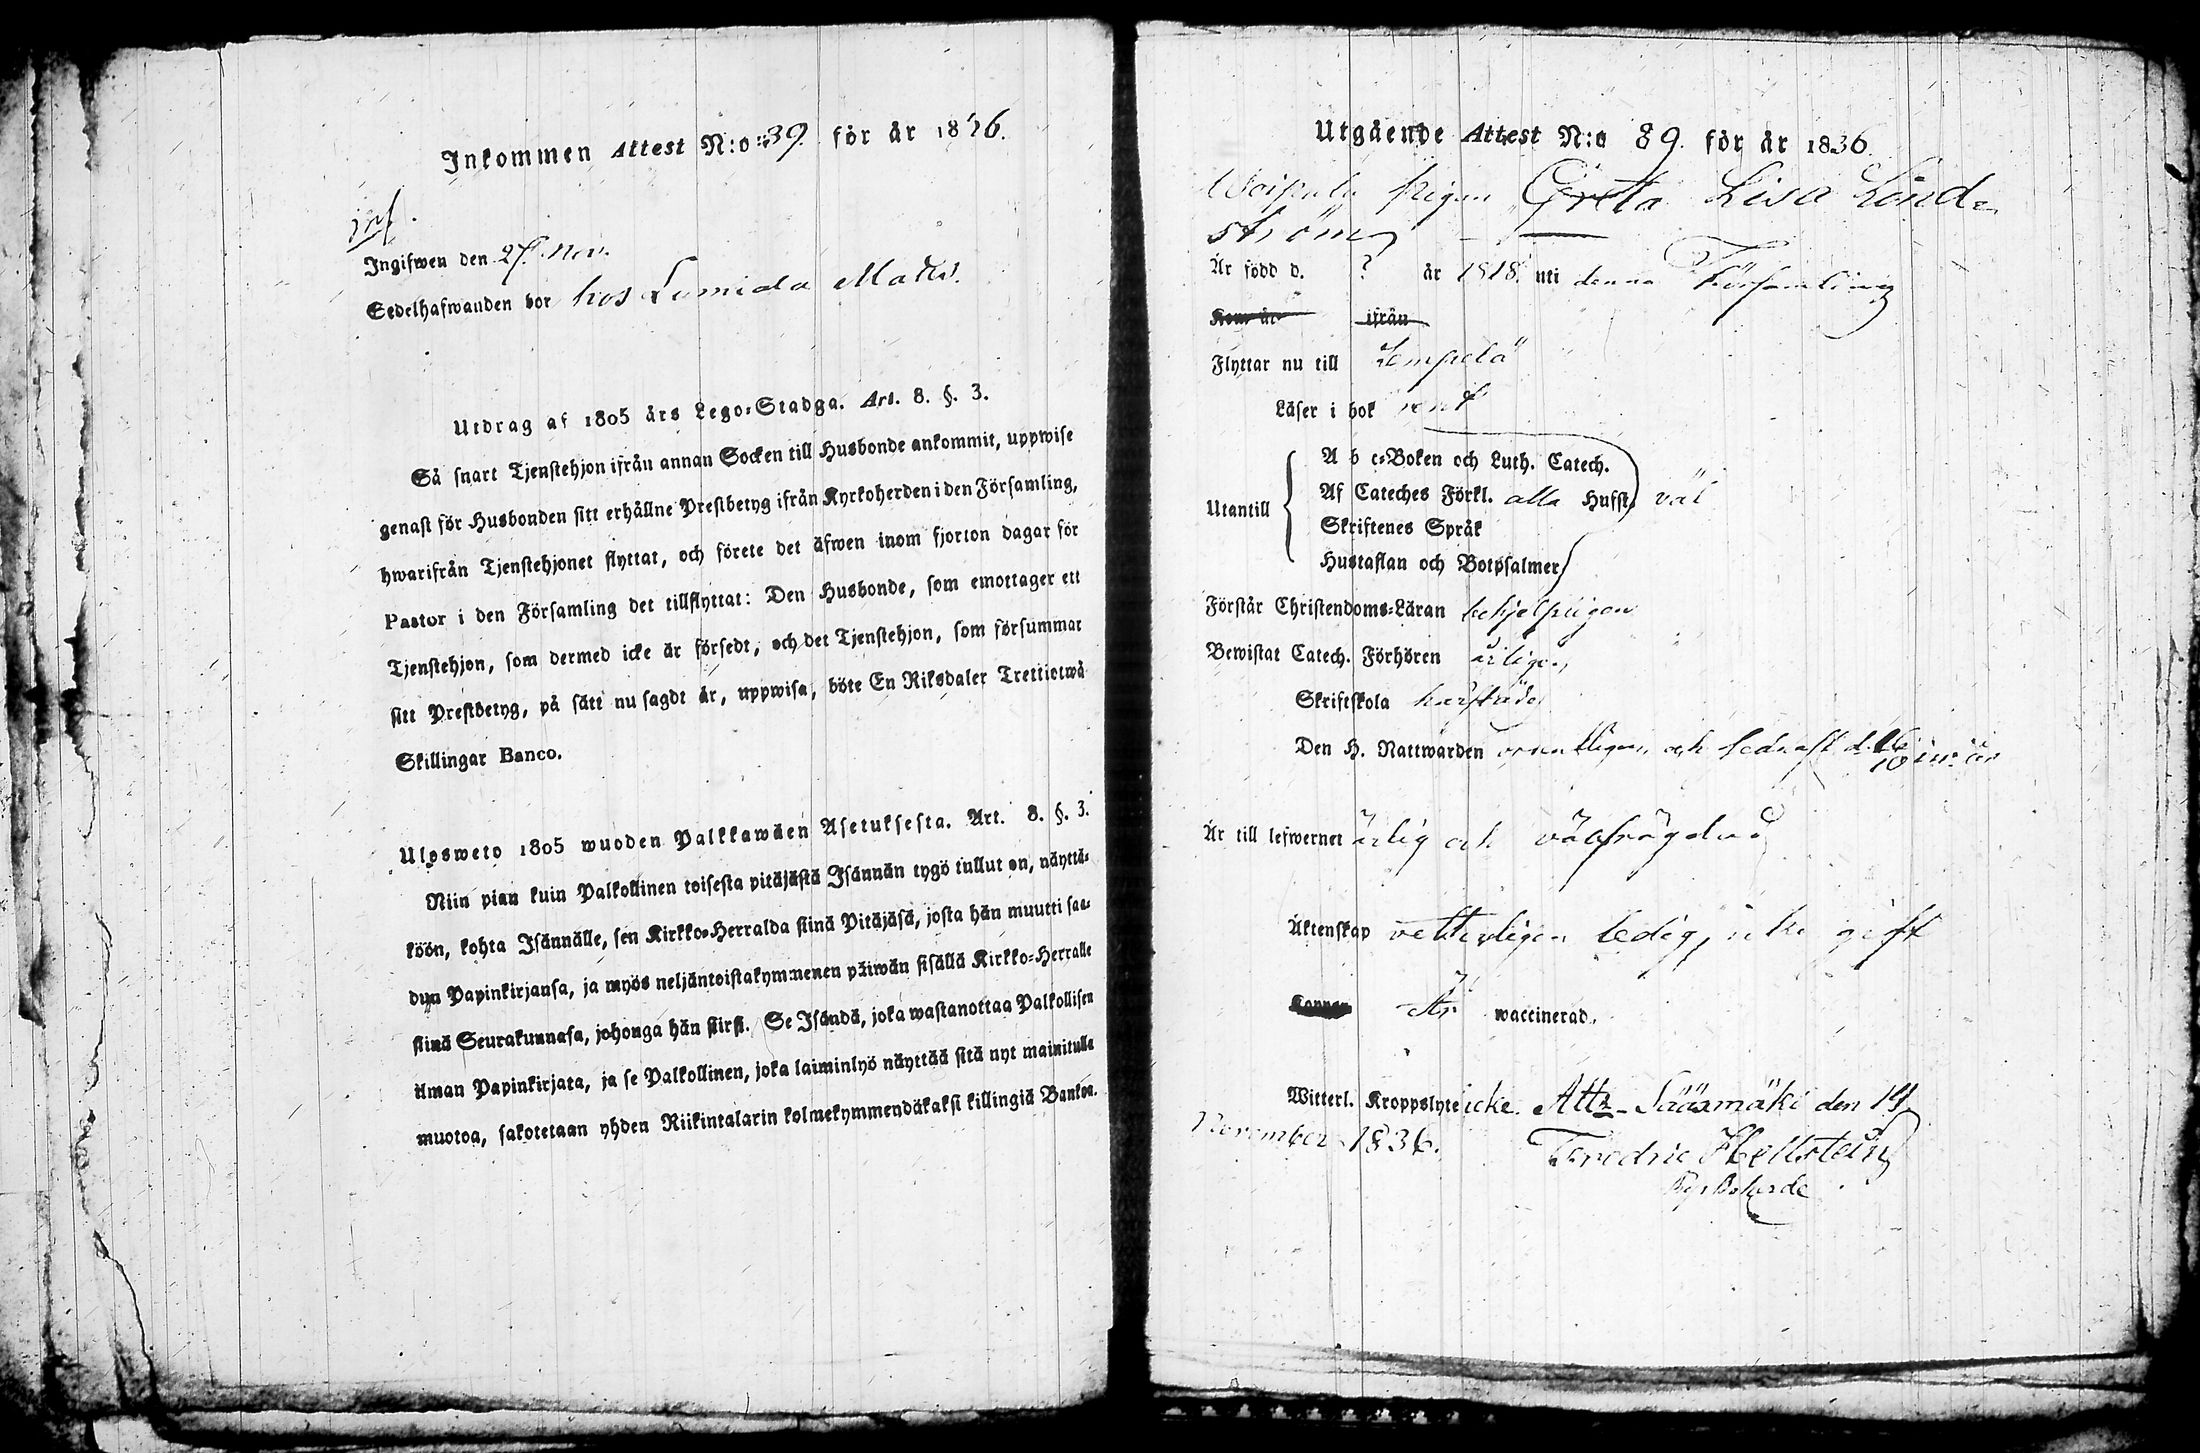 Inkommen Attest N:o 39. för år 1836.
Ingifwen den 27 Nov.
Sedelhafwanden bor hos Lumiala Matts.
Utdrag af 1805 års Lego-Stadga. Art. 8. §. 3.
Så snart Tjenstehjon ifrån annan Socken till Husbonde ankommit, uppwise
genast för Husbonden sitt erhållne Prestbetyg ifrån Kyrkoherden i den Församling,
hwarifrån Tjenstehjonet flyttat, och förete det äfwen inom fjorton dagar för
Pastor i den Församling det tillflyttat: Den Husbonde, som emottager ett
Tjenstehjon, som dermed icke är försedt, och det Tjenstehjon, som försummar
sitt Prestbetyg, på sätt nu sagdt är, uppwisa, böte En Riksdaler Trettiotwå
Skillingar Banco.
Ulosweto 1805 wuoden Palkkawäen Asetuksesta. Art. 8. §. 3.
Niin pian kuin Palkollinen toisesta pitäjästä Isännän tygö tullut on, näyttä-
köön, kohta Isännälle, sen Kirkko-Herralda siinä Pitäjäsä, josta hän muutti saa-
dun Papinkirjansa, ja myös neljäntoistakymmenen päiwän sisällä Kirkko-Herralle
siinä Seurakunnasa, johonga hän siirsi. Se Isändä, joka wastanottaa Palkollisen
ilman Papinkirjata, ja se Palkollinen, joka laiminlyö näyttää sitä nyt mainitulla
muotoa, sakotetaan yhden Riikintalarin kolmekymmendäkaksi killingiä Bankoa.
Utgående Attest N:o 89. för år 1836.
pigan Greta Lisa Lind-
ström
Är född d. ? år 1818. uti denna Församling
Kom år ifrån
Flyttar nu till Lempelä
Läser i bok rent
Utantill
A b c-Boken och Luth. Catech.
Af Cateches Förkl. alla Hufst. väl
Skriftenes Språk
Hustaflan och Botpsalmer
Förstår Christendoms-Läran behjelpligen
Bewistat Catech. Förhören årligen,
Skriftskola
Den H. Nattwarden ordentligen och sednast d. 16/10 inn. år
Är till lefwernet ärlig och välfrägdad
Äktenskap vetterligen ledig, icke gift
Är waccinerad.
Witterl. Kroppslyte icke. Att:r Sääxmäki den 14
November 1836. Fredric Hellsten
Kyrkoherde